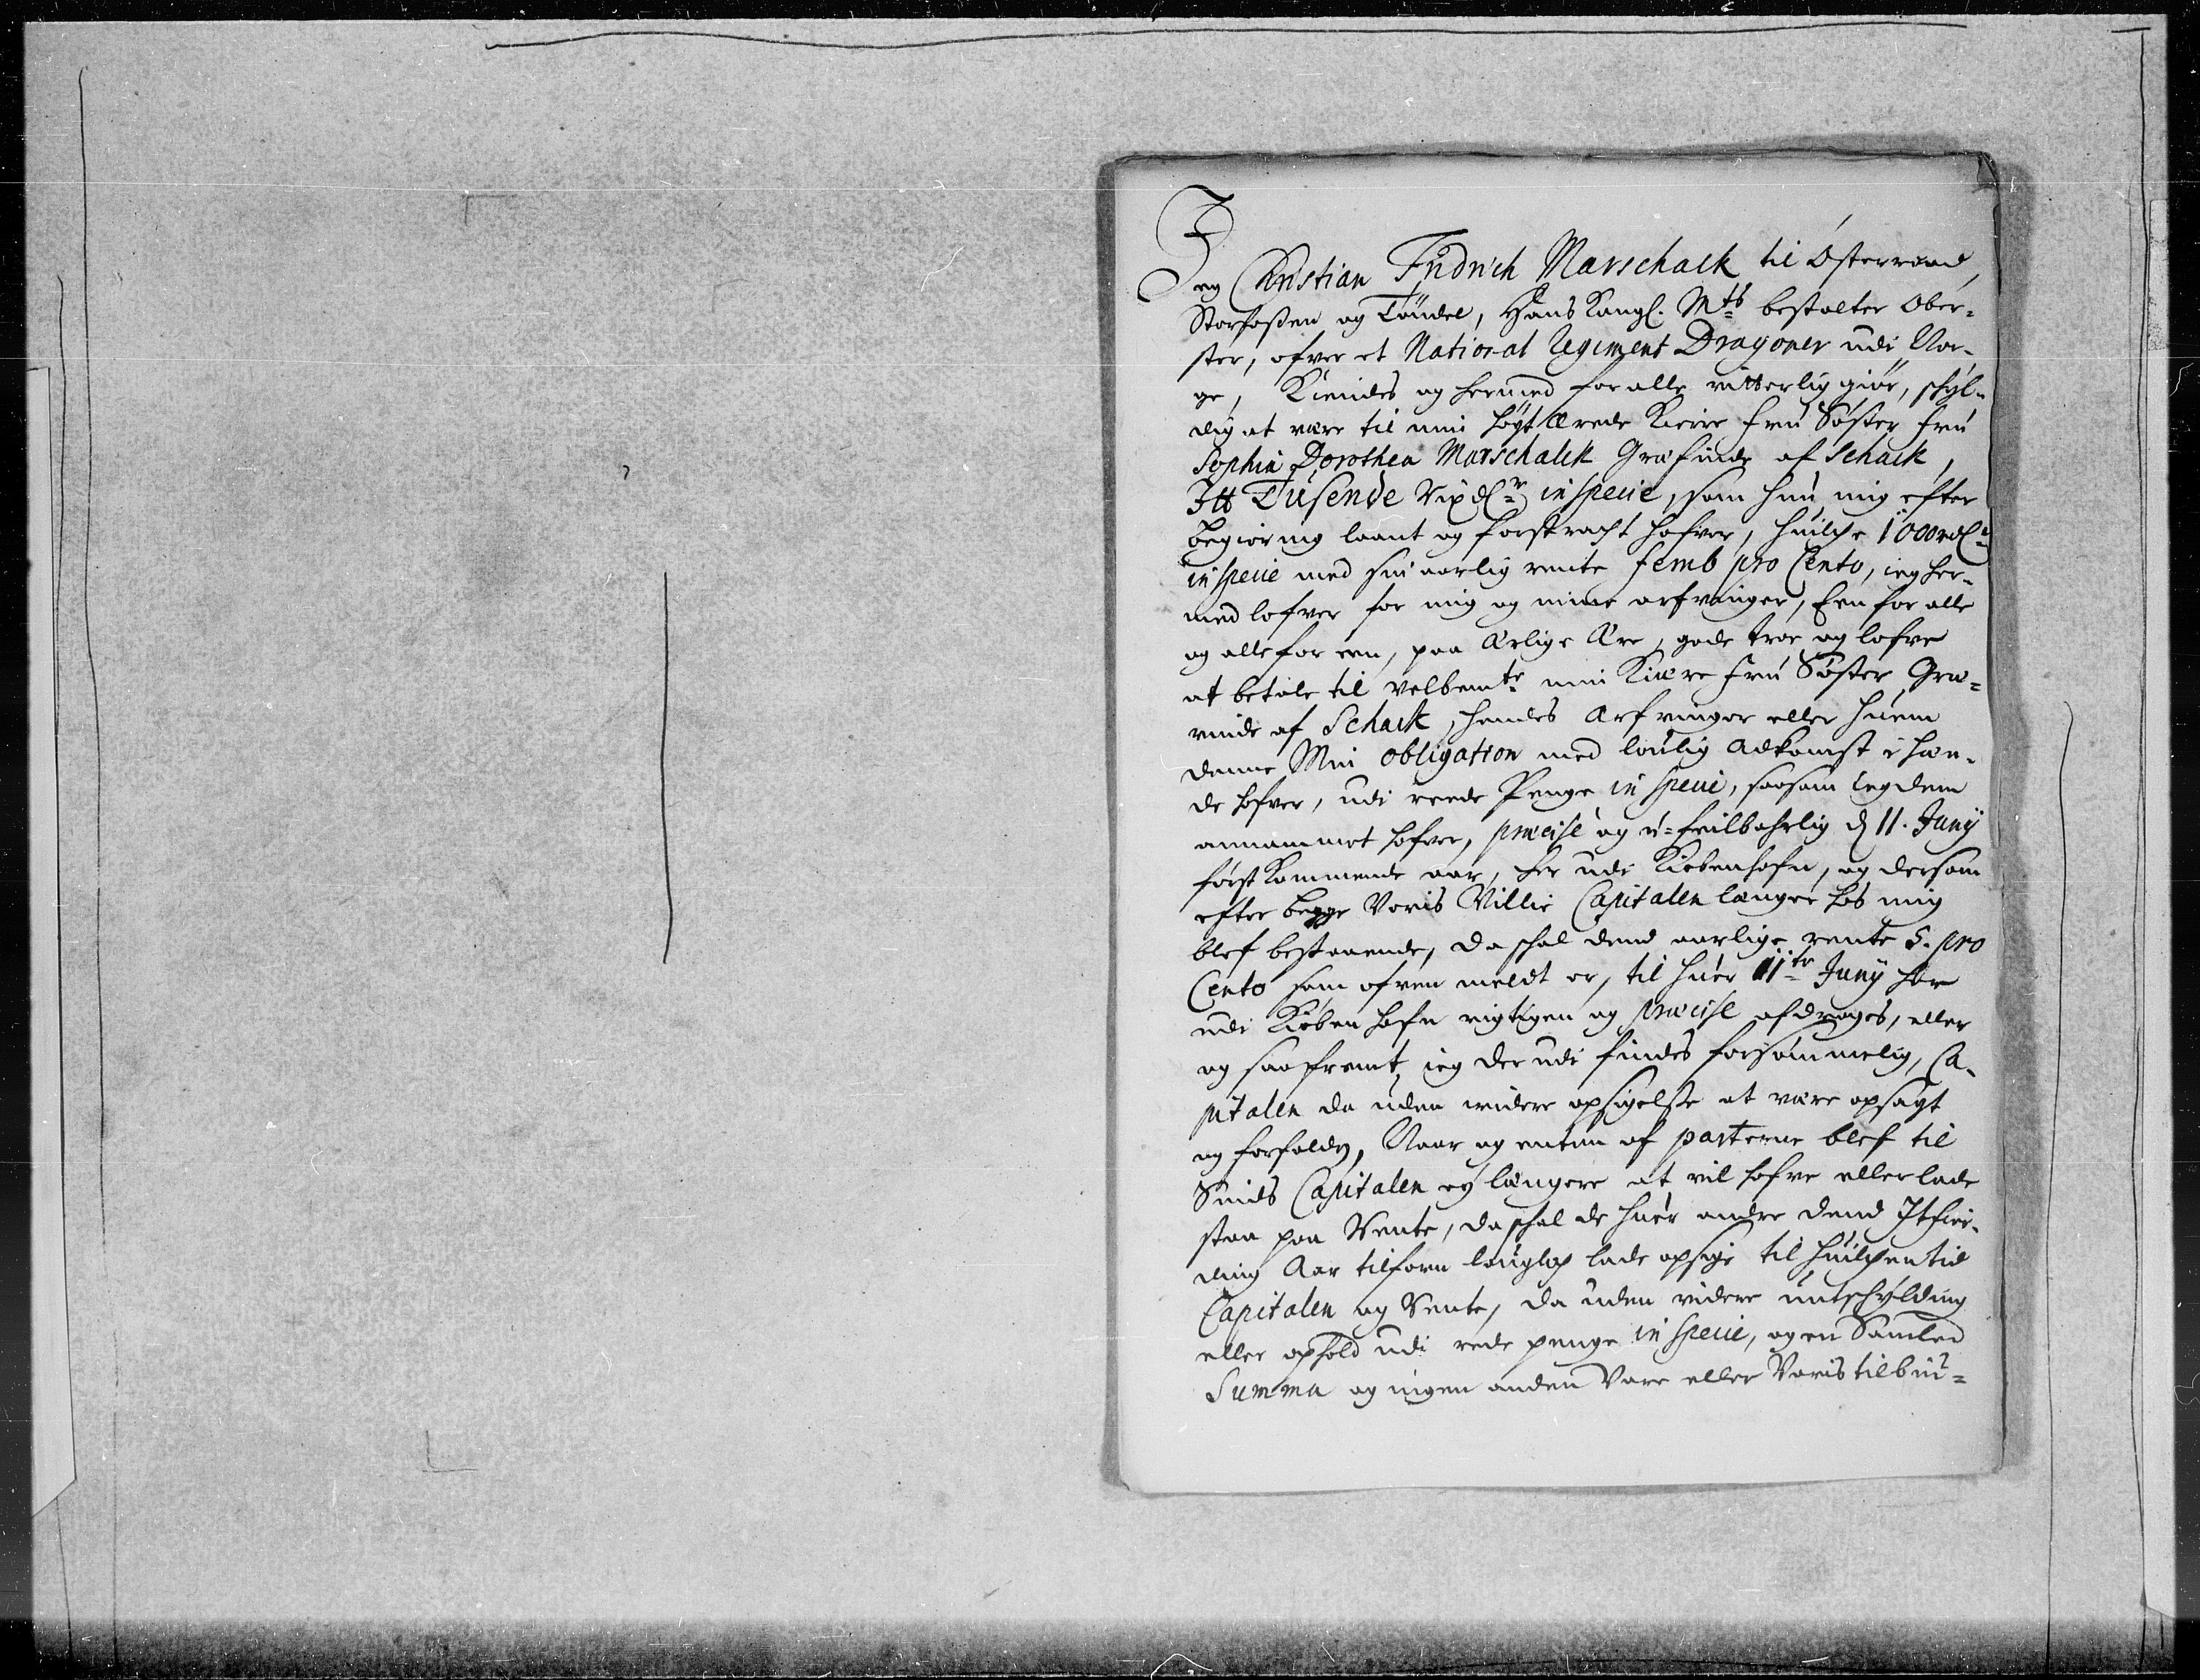 Jeg Christian Fridrich Marschalk til Østerraad,
Storfosen og Tøndel, Hans Kongl. Mts bestalter Ober-
ster, ofver et National Regiment Dragoner udi Nor-
ge, Kiendes og hermed for alle vitterlig giør, skyl-
dig at være til min høyt Ærede Kiære Fru Søster Fru
Sophia Dorothea Marschalck Grefinde af Schack,
Itt Tusende Rixdlr in specie, som hun mig efter
begiering laant og forstracht hafver, huilche 1000 rdlr
in specie med sin aarlig rente femb pro Cento, ieg her-
med lofver for mig og mine arfvinger, Een for alle
og alle for een, paa Ærlige Ære, gode troe og lofve
at betale til velbemte min Kiære Fru Søster Gre-
vinde af Schack, hendes Arfvinger eller huem
denne Min obligation med loulig Adkomst i hæn-
de hafver, udi reede Penge in specie, saasom ieg dem
annammet hafver, præcise og u-feilbahrlig d 11. Junÿ
først Kommende aar, her udi Kiøbenhafn, og dersom
efter begge Voris Villie Capitalen længer hos mig
blef bestaaende, da schal dend aarlige rente 5. pro
Cento som ofven meldt er, til huer 11te Junÿ her
udi Kiøbenhafn rigtigen og præcise afdrages, eller
og saafremt ieg der udi findes forsømmelig, Ca-
pitalen da uden widere opsigelse at være opsagt
og forfalden, Naar og enten af parterne blef til
Sinds Capitalen eÿ længere at vil hafve eller lade
staa paa Rente, da schal de huer andre dend It fier-
ding Aar tilforn lougligen lade opsige til huilchen tid
Capitalen og Rente, da uden videre undschylding
eller ophold udi rede penge in specie, og en Samled
Summa og ingen anden Vare eller Voris tilbui-